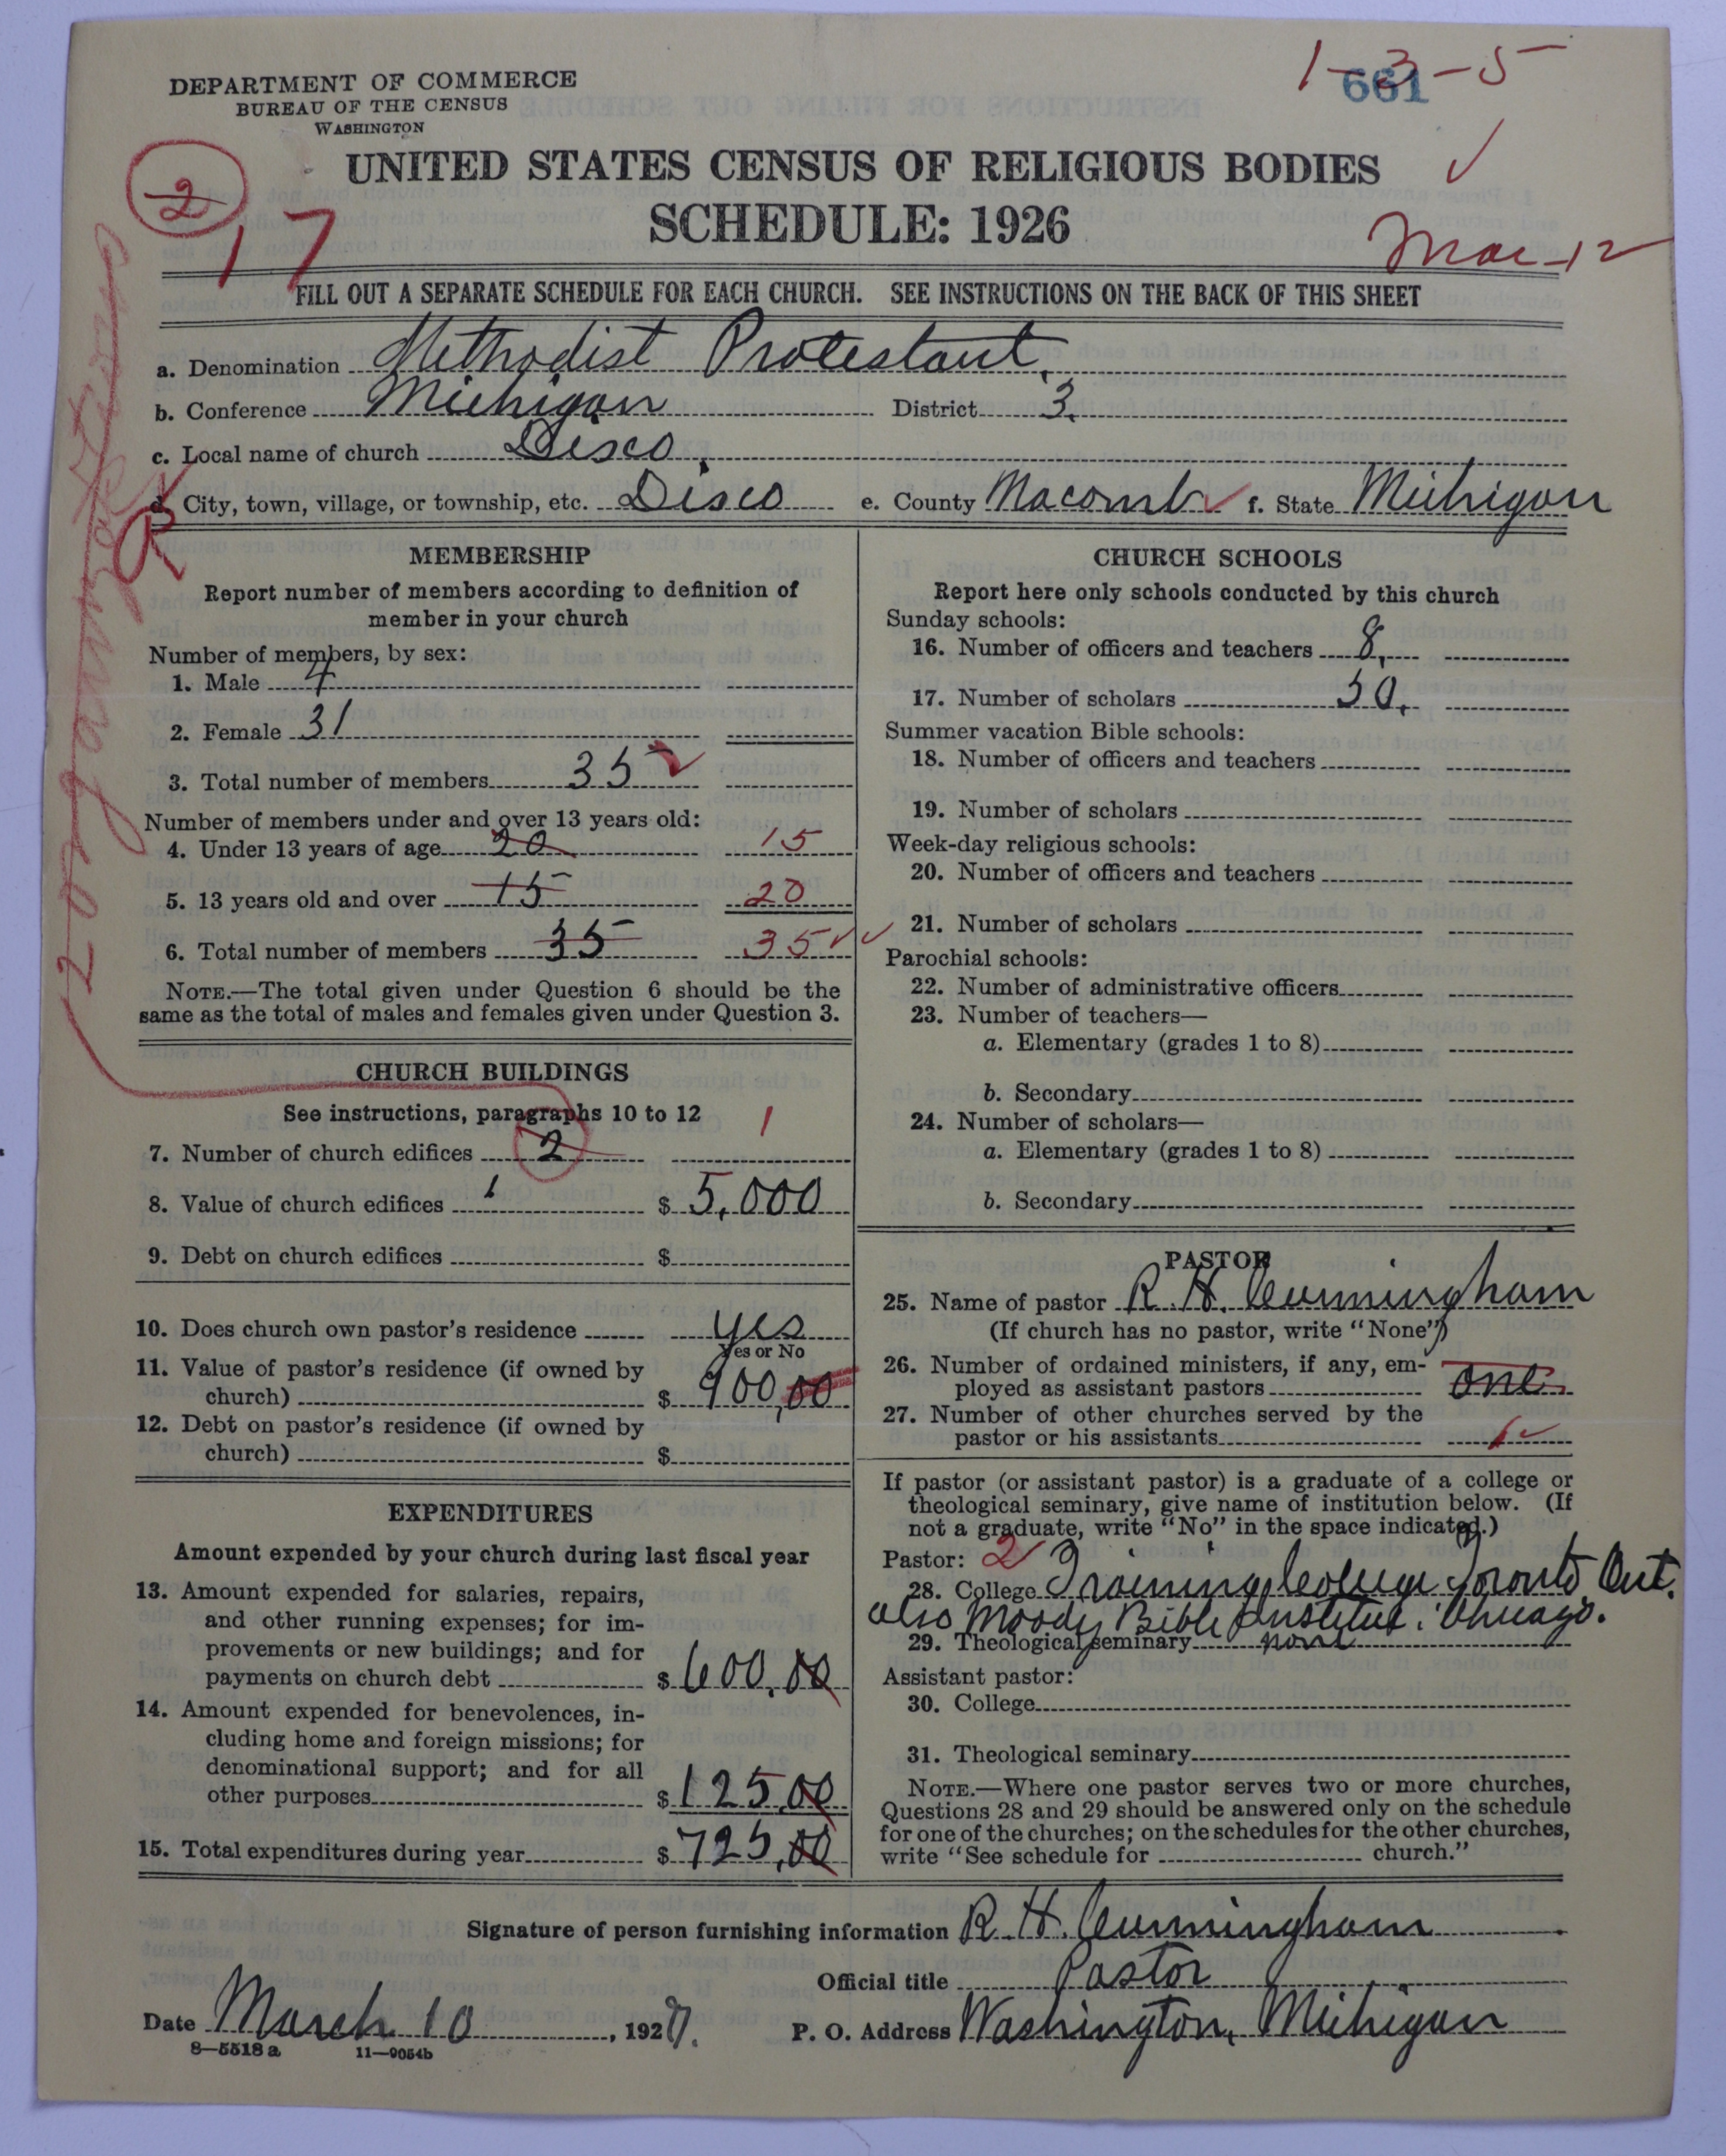 1-3-5
661
DEPARTMENT OF COMMERCE
BUREAU OF THE CENSUS
WASHINGTON
UNITED STATES CENSUS OF RELIGIOUS BODIES
SCHEDULE: 1926
2
17
Mar-12
FILL OUT A SEPARATE SCHEDULE FOR EACH CHURCH. SEE INSTRUCTIONS ON THE BACK OF THIS SHEET
a. Denomination Methodist Protestant.
b. Conference Michigan District 3.
c. Local name of church Disco.
d. City, town, village, or township, etc. Disco e. County Macomb f. State Michigan
2 organizations
MEMBERSHIP
Report number of members according to definition of
member in your church
Number of members, by sex:
1. Male 4
2. Female 31
3. Total number of members 35
Number of members under and over 13 years old:
4. Under 13 years of age 20 15
5. 13 years old and over 15 20
6. Total number of members 35 35
NOTE.—The total given under Question 6 should be the
same as the total of males and females given under Question 3.
CHURCH BUILDINGS
See instructions, paragraphs 10 to 12
7. Number of church edifices 2 1
8. Value of church edifices 1 $ 5,000
9. Debt on church edifices $
10. Does church own pastor's residence yes
Yes or No
11. Value of pastor's residence (if owned by
church) $ 900,00
12. Debt on pastor's residence (if owned by
church) $
EXPENDITURES
Amount expended by your church during last fiscal year
13. Amount expended for salaries, repairs,
and other running expenses; for im-
provements or new buildings; and for
payments on church debt $ 600.00
14. Amount expended for benevolences, in-
cluding home and foreign missions; for
denominational support; and for all
other purposes $ 125.00
15. Total expenditures during year $ 725.00
CHURCH SCHOOLS
Report here only schools conducted by this church
Sunday schools:
16. Number of officers and teachers 8.
17. Number of scholars 50.
Summer vacation Bible schools:
18. Number of officers and teachers
19. Number of scholars
Week-day religious schools:
20. Number of officers and teachers
21. Number of scholars
Parochial schools:
22. Number of administrative officers
23. Number of teachers—
a. Elementary (grades 1 to 8)
b. Secondary
24. Number of scholars—
a. Elementary (grades 1 to 8)
b. Secondary
PASTOR
25. Name of pastor R. H. Cunningham
(If church has no pastor, write "None")
26. Number of ordained ministers, if any, em-
ployed as assistant pastors one
27. Number of other churches served by the
pastor or his assistants 1
If pastor (or assistant pastor) is a graduate of a college or
theological seminary, give name of institution below. (If
not a graduate, write "No" in the space indicated.)
Pastor: 2
28. College Training College Toronto Ont.
also Moody Bible Institute. Chicago.
29. Theological seminary none
Assistant pastor:
30. College
31. Theological seminary
NOTE.—Where one pastor serves two or more churches,
Questions 28 and 29 should be answered only on the schedule
for one of the churches; on the schedules for the other churches,
write "See schedule for church."
Signature of person furnishing information R. H. Cunningham
Official title Pastor
Date March 10, 1927. P. O. Address Washington, Michigan
8—5518a 11—9054b